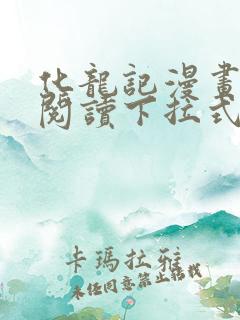 化龍記漫畫
閱讀下拉式
卡瑪拉雅
未经同意禁止转载